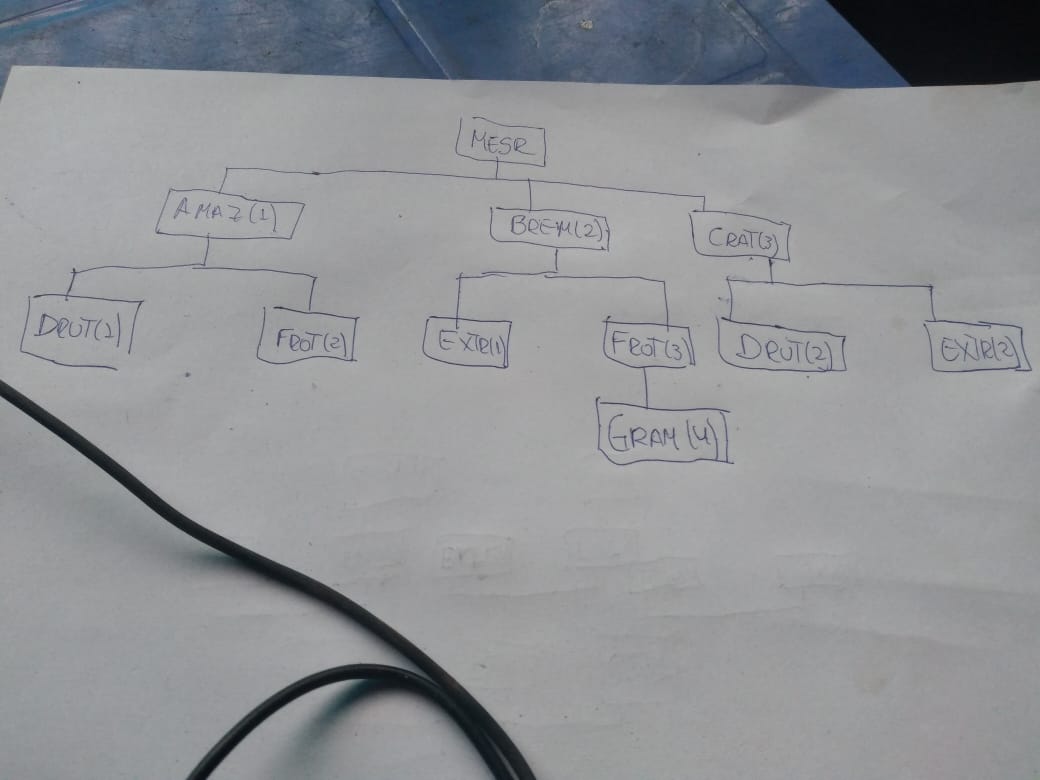 MESR
AMAZ(1)
BREM(2)
CRAT(3)
DRUT(1)
FROT(2)
EXTR(1)
FROT(3)
DRUT(2)
EXTR(2)
GRAM(4)